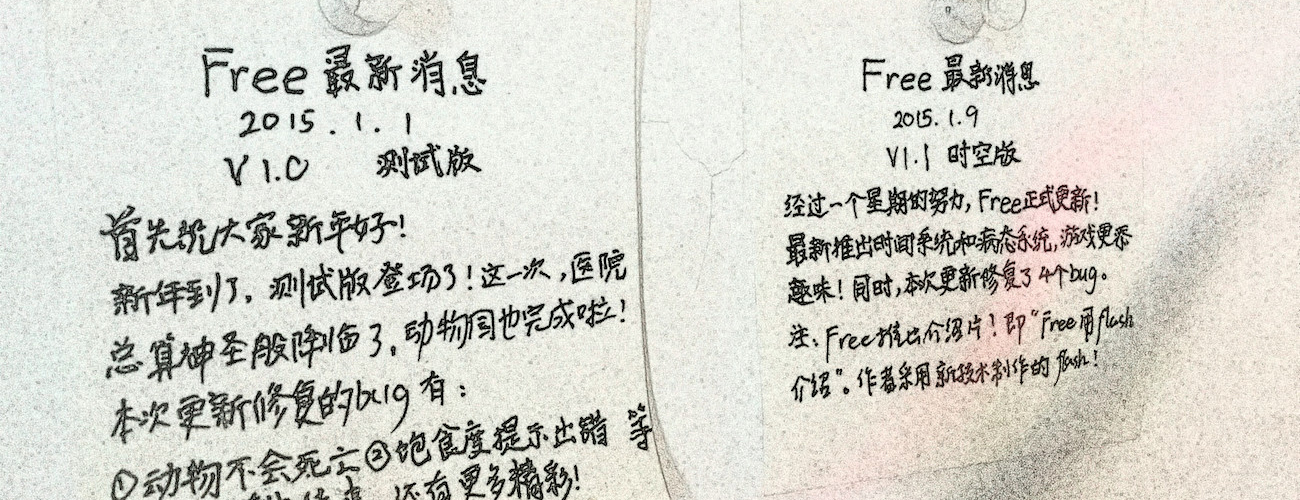 Free 最新消息
2015.1.1
V1.0 测试版
首先祝大家新年好!
新年到了,测试版登场了!这一次,医院
总算神圣般降临了,动物园也完成啦!
本次更新修复的bug有:
①动物不会死亡②饱食度提示出错 等
还有更多精彩!
Free 最新消息
2015.1.9
V1.1 时空版
经过一个星期的努力,Free正式更新!
最新推出时间系统和病态系统,游戏更添
趣味!同时,本次更新修复了4个bug。
注:Free推出介绍片!即“Free用flash
介绍”。作者采用新技术制作的flash!